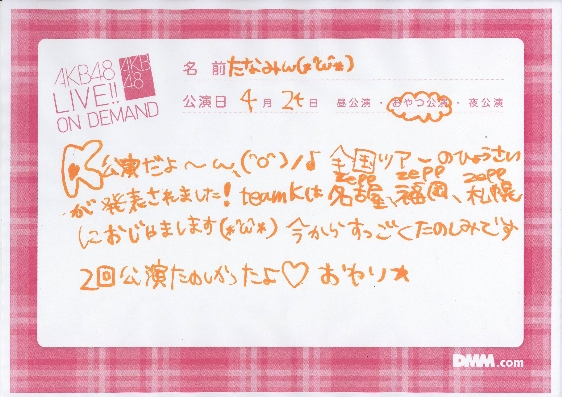 AKB48
LIVE!!
ON DEMAND
AKB
48
名 前 たなみん(*'ω'*)
公演日 4月 24日 昼公演・おやつ公演・夜公演
K公演だよ〜ん、(^o^)ノ♪ 全国ツアーのひょうさい
zepp zepp zepp
が発表されました!teamKは名古屋、福岡、札幌
におじゃまします(*'ω'*) 今からすっごくたのしみです
2回公演たのしかったよ♡ おわり★
DMM.com